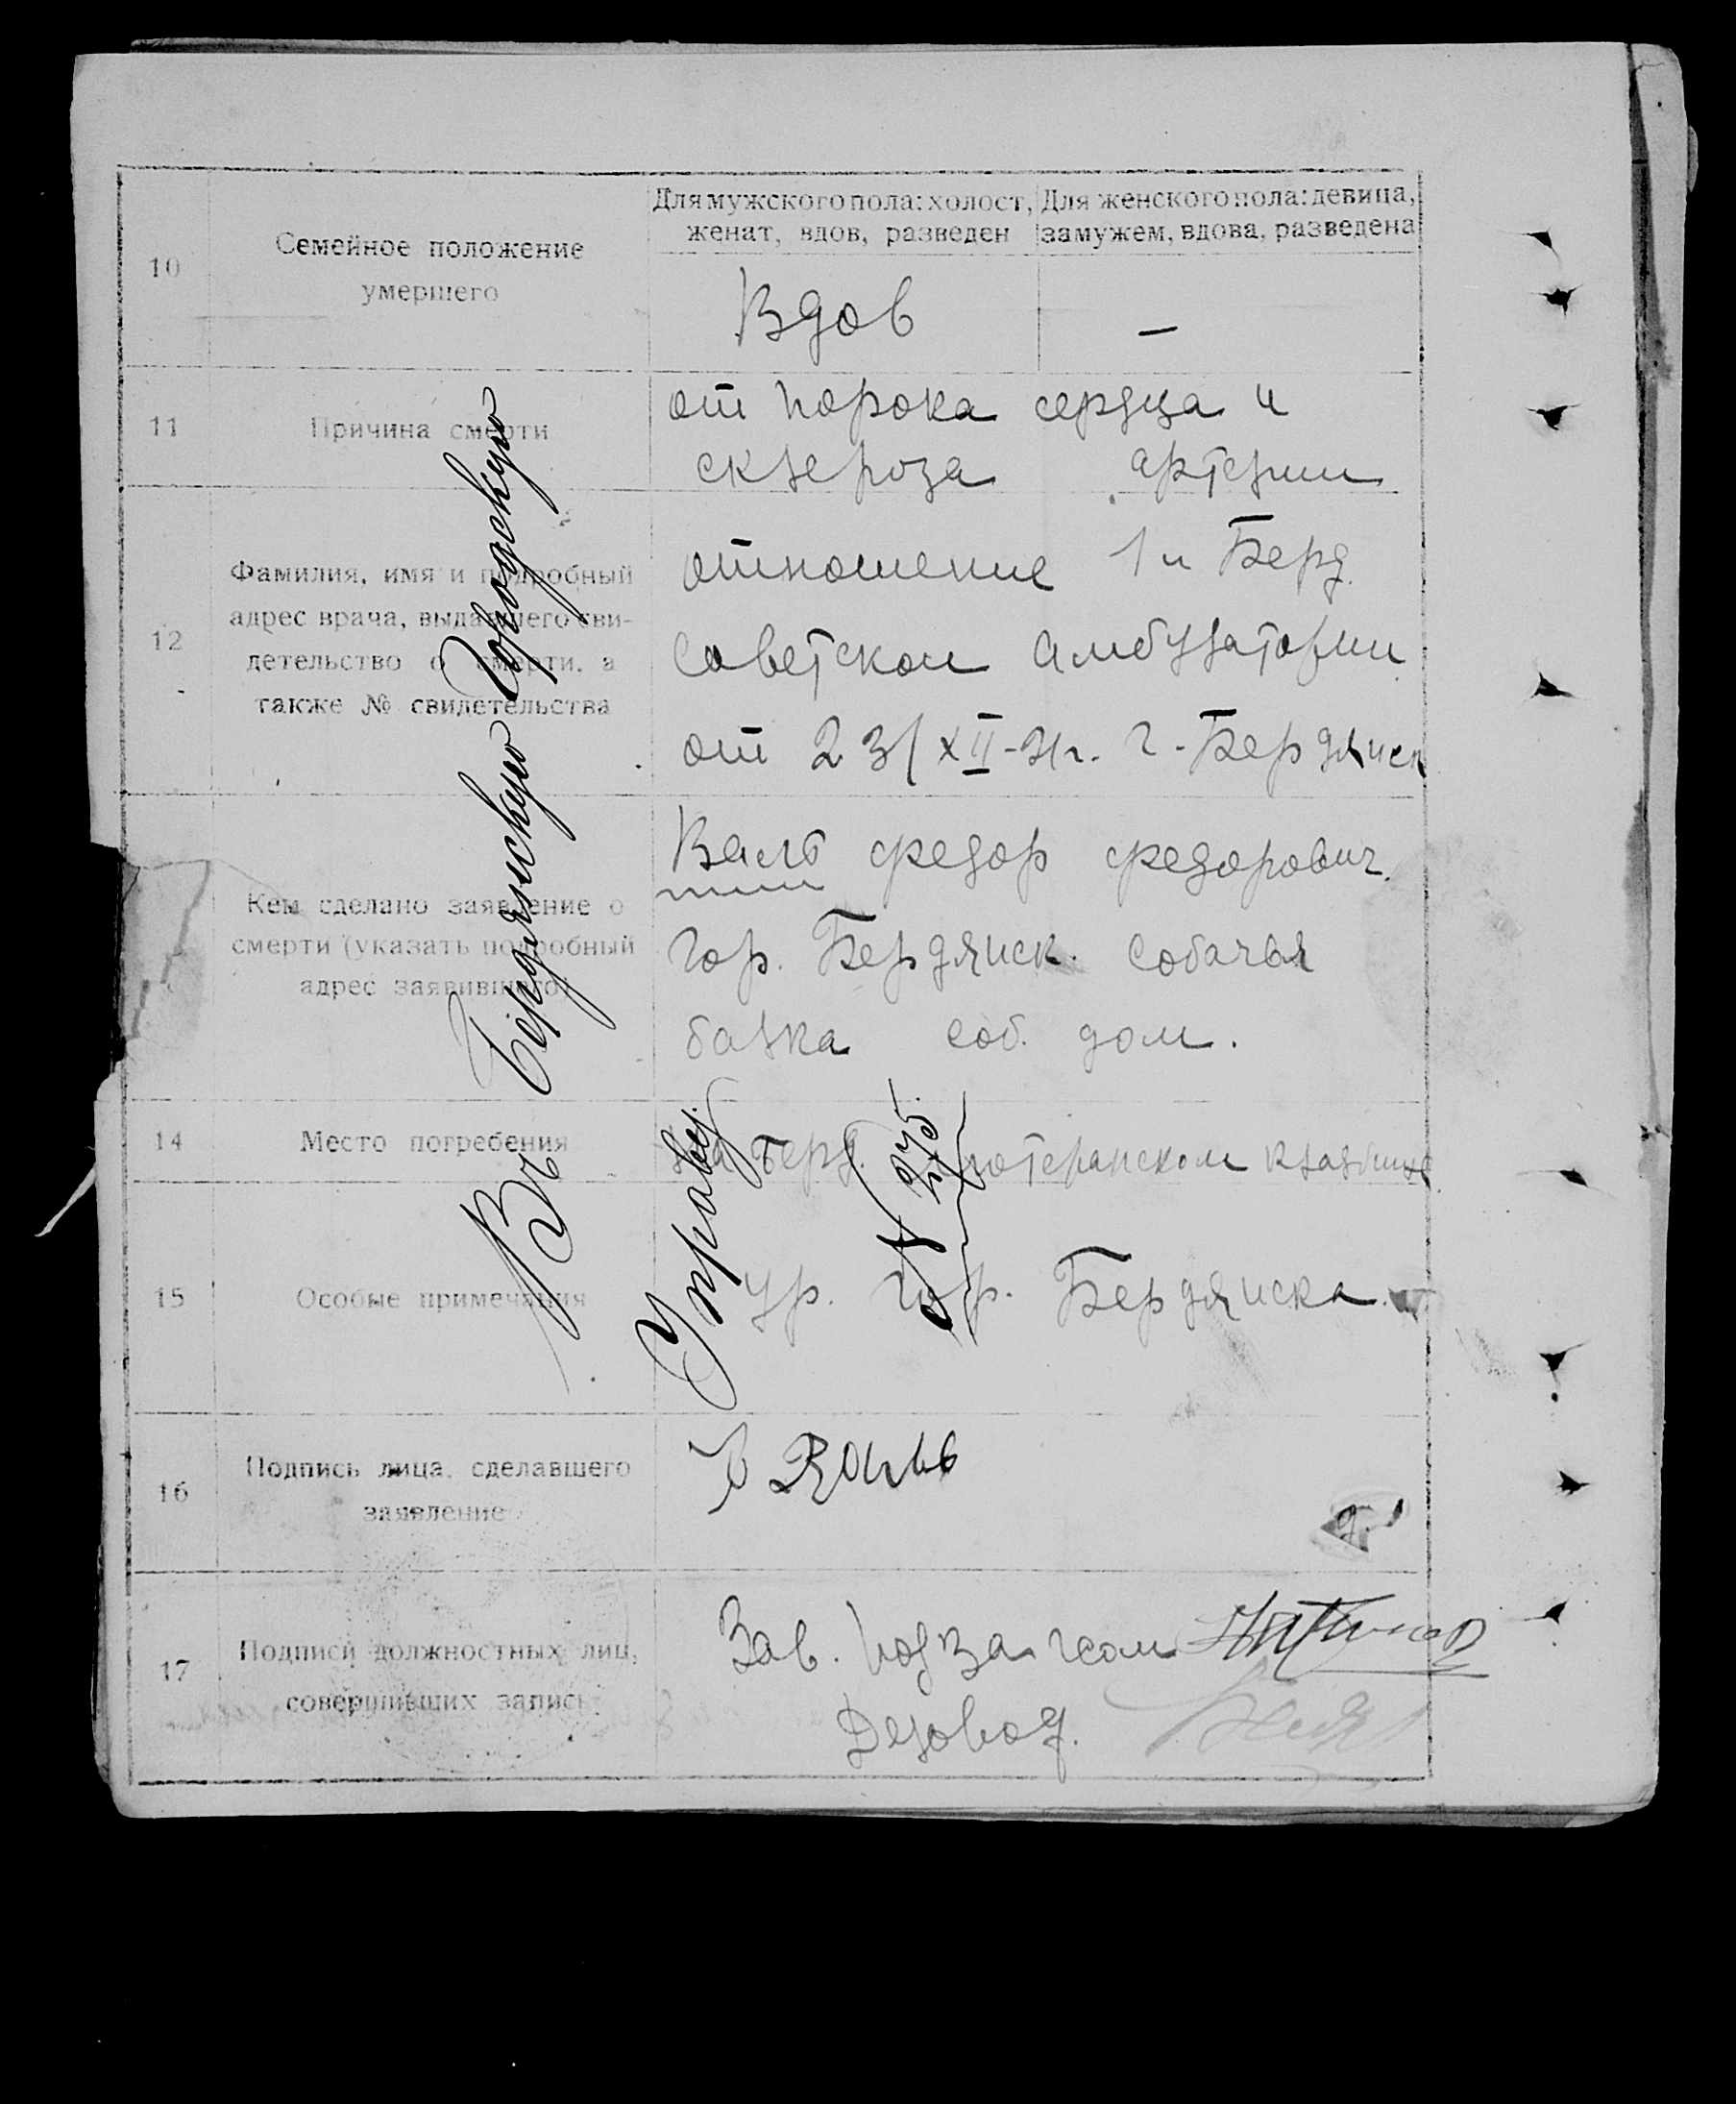 10
Семейное положение
умершего
Для мужского пола: холост,
женат, вдов, разведен
Для женского пола: девица,
замужем, вдова, разведена
Вдов
—
11
Причина смерти
от порока сердца и
склероза артерии
12
Фамилия, имя и подробный
адрес врача, выдавшего сви-
детельство о смерти, а
также № свидетельства
отношение 1й Берд.
Советской амбулатории
от 23/XII-21г. г. Бердянск
Кем сделано заявление о
смерти (указать подробный
адрес заявившего)
Федор Федорович
гор. Бердянск. Собачья
балка соб. дом.
14
Место погребения
на Берд. лютеранском кладбище
15
Особые примечания
ур. гор. Бердянска.
16
Подпись лица, сделавшего
заявление
17
Подписи должностных лиц,
совершивших запись
Зав. подзагсом
Деловод.
Въ Бердянскую Городскую
Управу.